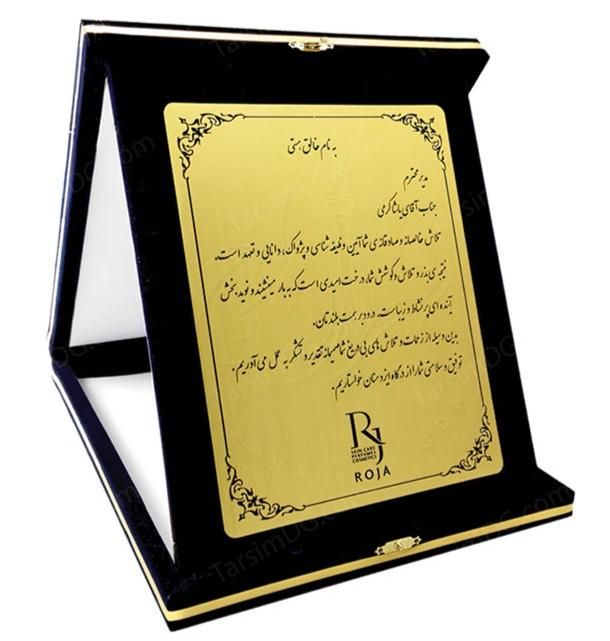 به نام خالق هستی
مدیر محترم
جناب آقای پاشا کرمی
تلاش خالصانه و صادقانه ی شما آیین وظیفه شناسی و پژواک، دانایی و تعهد است.
نتیجه ی بذر و تلاش و کوشش شما، درخت امیدی است که به بار مینشیند و نوید بخش
آینده ای پر نشاط و زیباست، درود بر همت بلندتان.
بدین وسیله از زحمات و تلاش های بی دریغ شما صمیمانه تقدیر و تشکر به عمل می آوریم.
توفیق و سلامتی شما را از درگاه ایزد منان خواستاریم.
RJ
SKIN CARE
PERFUMES
COSMETICS
ROJA
TarsimDG.com